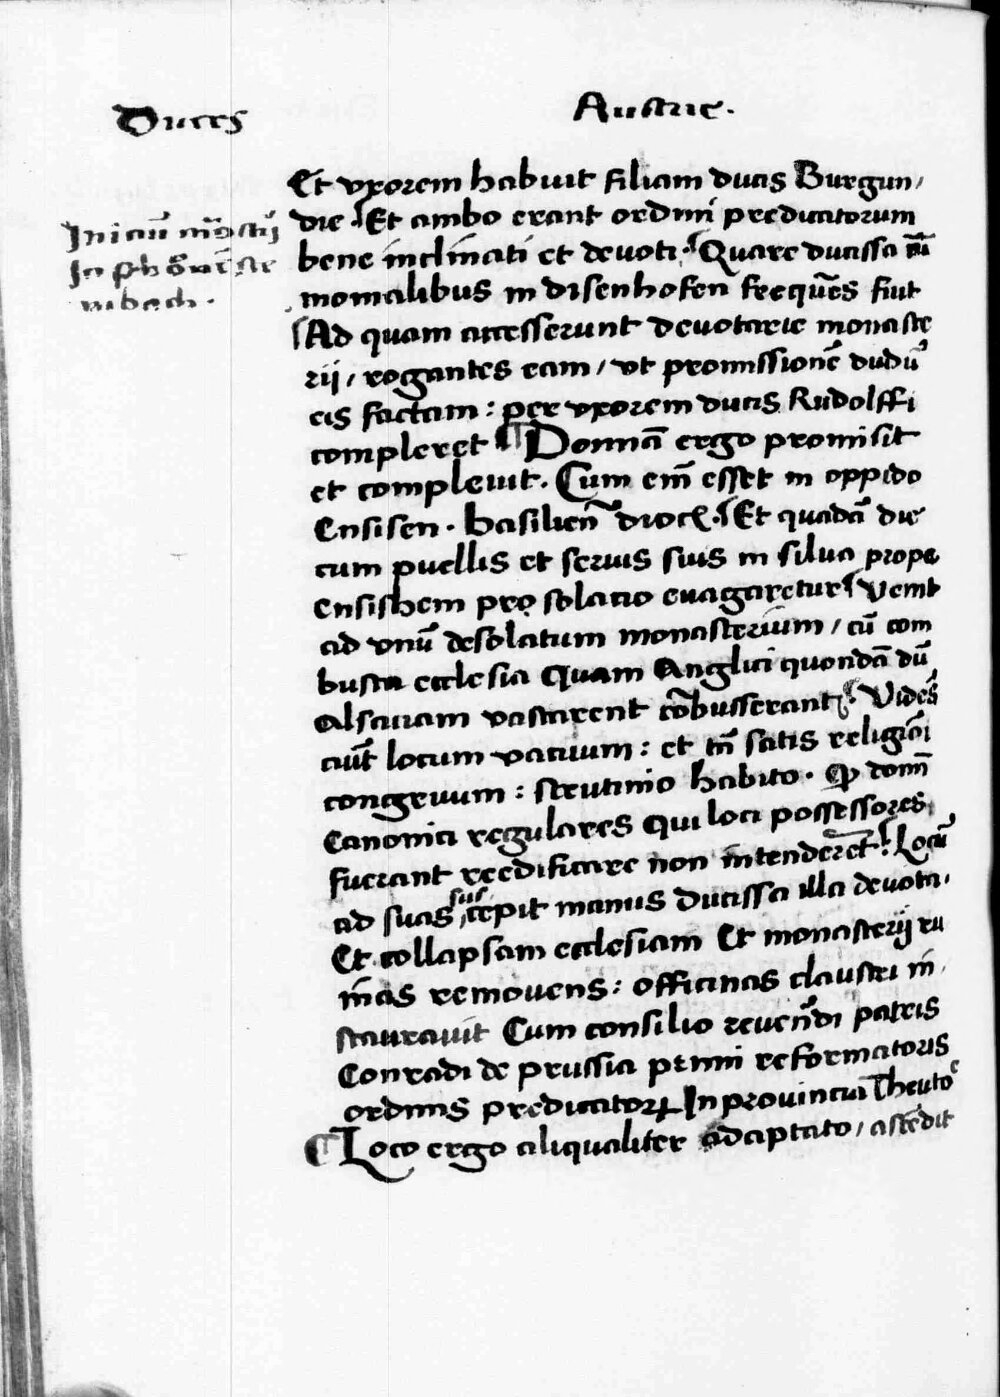 Duces Austrie.
Et vxorem habuit filiam ducis Burgun,
die. Et ambo erant ordini predicatorum
bene inclinati et deuoti. Quare ducissa
monialibus in disenhofen
Ad quam accesserunt deuotarie monaste
rij, rogantes eam, vt promissionē dudū
eis factam: per vxorem ducis Rudolffi
compleret ergo promisit
et compleuit. Cum em̄ esset in oppido
Ensisen. basilien̄ dioc. Et quadā die
cum puellis et seruis suis in silua prope
ensishem pro solacio euagaretur venit
ad vnū desolatum monasterium, cū com
busta ecclesia Quam Anglici quondā dū
alsaciam vastarent cōbusserant. Vides
locum vacuum: et tn̄ satis religiōi
congruum: scrutinio habito. domī
Canonici regulares qui loci possessores
fuerant reedificare non intenderēt. Locū
ad suas suscepit manus Ducissa illa deuota.
Et collapsam ecclesiam Et monasterij ru
inas remouens: officinas claustri in,
staurauit Cum consilio reuerēdi patris
Conradi de prussia primi reformatoris
ordinis predicatoꝝ In prouincia Theuto
Loco ergo aliqualiter adaptato, ascēdit